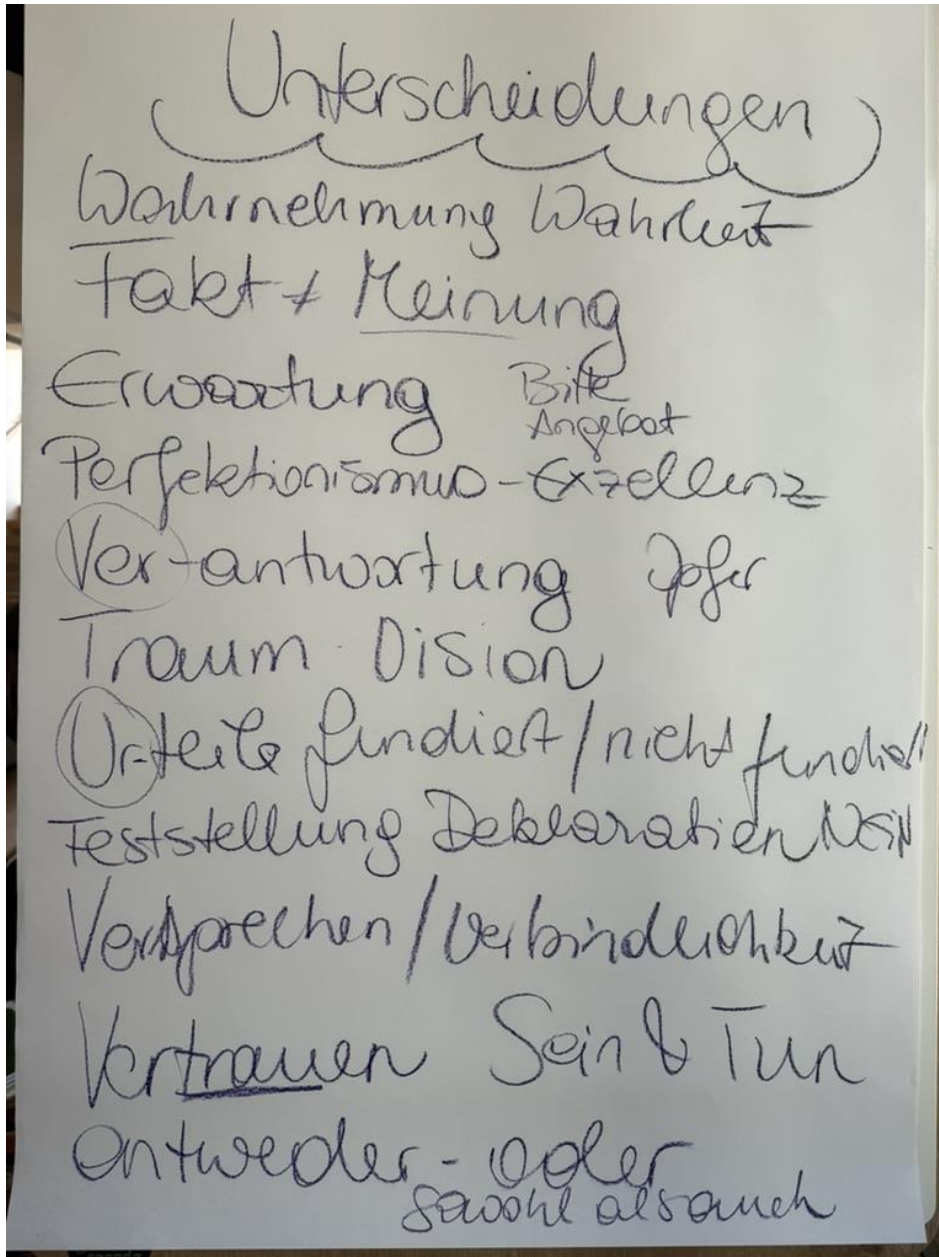 Unterscheidungen
Wahrnehmung Wahrheit
Fakt ≠ Meinung
Erwartung Bitte
Angebot
Perfektionismus - Exzellenz
Ver-antwortung Opfer
Traum Vision
Ur-teile fundiert / nicht fundiert
Feststellung Deklaration NEiN
Versprechen / Verbindlichkeit
Vertrauen Sein & Tun
entweder - oder
sowohl als auch